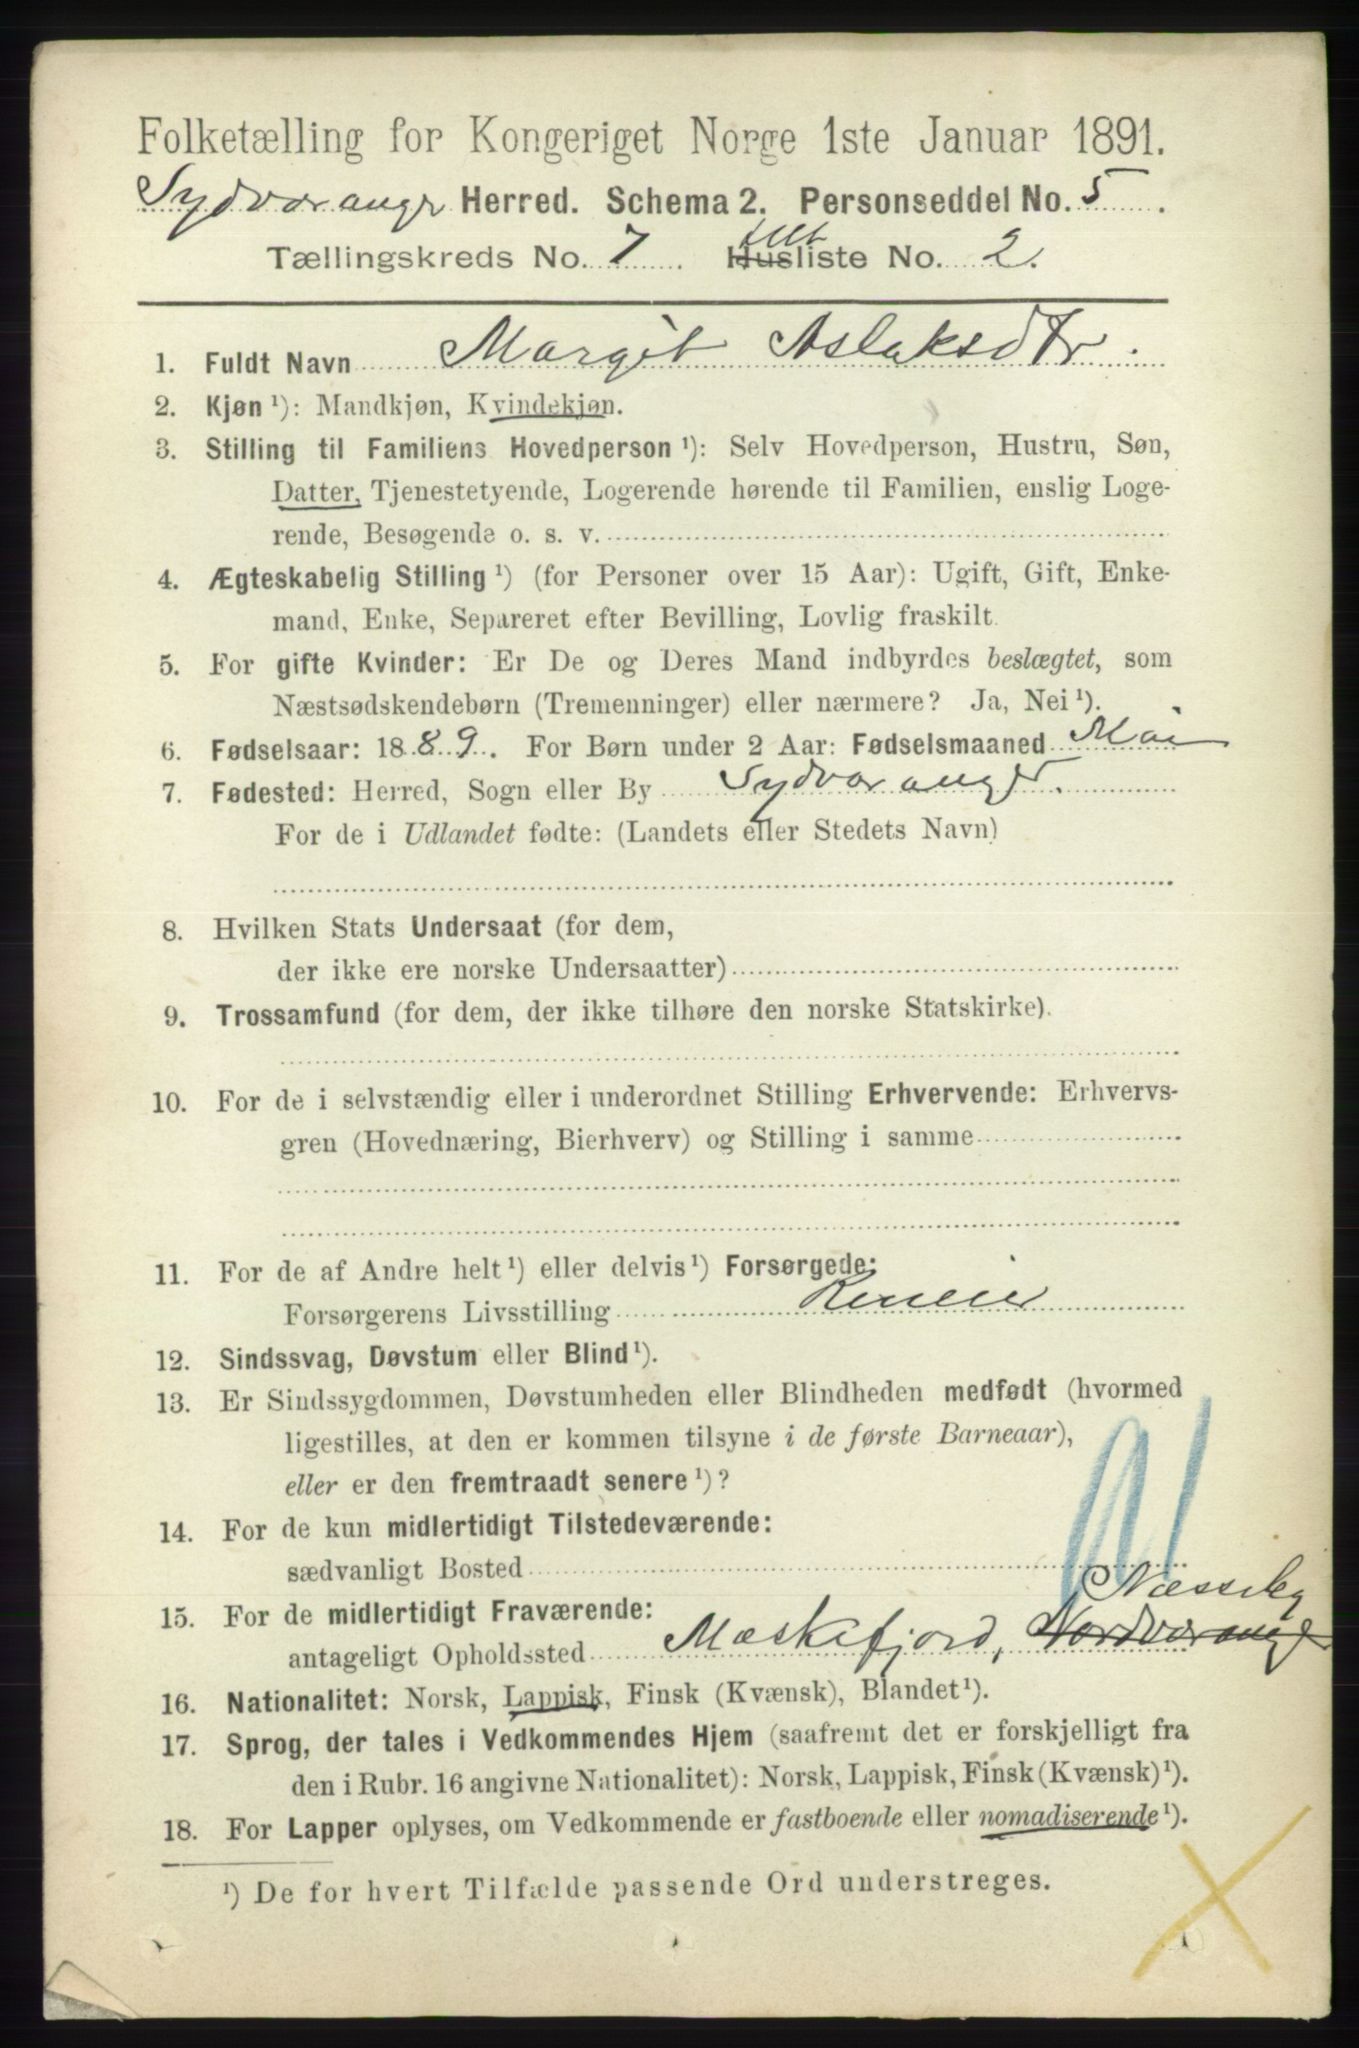 Folketælling for Kongeriget Norge 1ste Januar 1891.
Sydvaranger Herred. Schema 2. Personseddel No. 5.
Tællingskreds No. 7. Husliste No. 2.
telt
1. Fuldt Navn Margit Aslaksdtr.
2. Kjøn ¹): Mandkjøn, Kvindekjøn.
3. Stilling til Familiens Hovedperson ¹): Selv Hovedperson, Hustru, Søn,
Datter, Tjenestetyende, Logerende hørende til Familien, enslig Loge-
rende, Besøgende o. s. v.
4. Ægteskabelig Stilling ¹) (for Personer over 15 Aar): Ugift, Gift, Enke-
mand, Enke, Separeret efter Bevilling, Lovlig fraskilt.
5. For gifte Kvinder: Er De og Deres Mand indbyrdes beslægtet, som
Næstsødskendebørn (Tremenninger) eller nærmere? Ja, Nei ¹).
6. Fødselsaar: 1889. For Børn under 2 Aar: Fødselsmaaned Mai
7. Fødested: Herred, Sogn eller By Sydvaranger.
For de i Udlandet fødte: (Landets eller Stedets Navn)
8. Hvilken Stats Undersaat (for dem,
der ikke ere norske Undersaatter)
9. Trossamfund (for dem, der ikke tilhøre den norske Statskirke).
10. For de i selvstændig eller i underordnet Stilling Erhvervende: Erhvervs-
gren (Hovednæring, Bierhverv) og Stilling i samme
11. For de af Andre helt ¹) eller delvis ¹) Forsørgede:
Forsørgerens Livsstilling Reneier
12. Sindssvag, Døvstum eller Blind ¹).
13. Er Sindssygdommen, Døvstumheden eller Blindheden medfødt (hvormed
ligestilles, at den er kommen tilsyne i de første Barneaar),
eller er den fremtraadt senere ¹)?
14. For de kun midlertidigt Tilstedeværende:
sædvanligt Bosted
Næsseby
15. For de midlertidigt Fraværende:
antageligt Opholdssted Mæskefjord, Nordvaranger
16. Nationalitet: Norsk, Lappisk, Finsk (Kvænsk), Blandet ¹).
17. Sprog, der tales i Vedkommendes Hjem (saafremt det er forskjelligt fra
den i Rubr. 16 angivne Nationalitet): Norsk, Lappisk, Finsk (Kvænsk) ¹).
18. For Lapper oplyses, om Vedkommende er fastboende eller nomadiserende ¹).
¹) De for hvert Tilfælde passende Ord understreges.